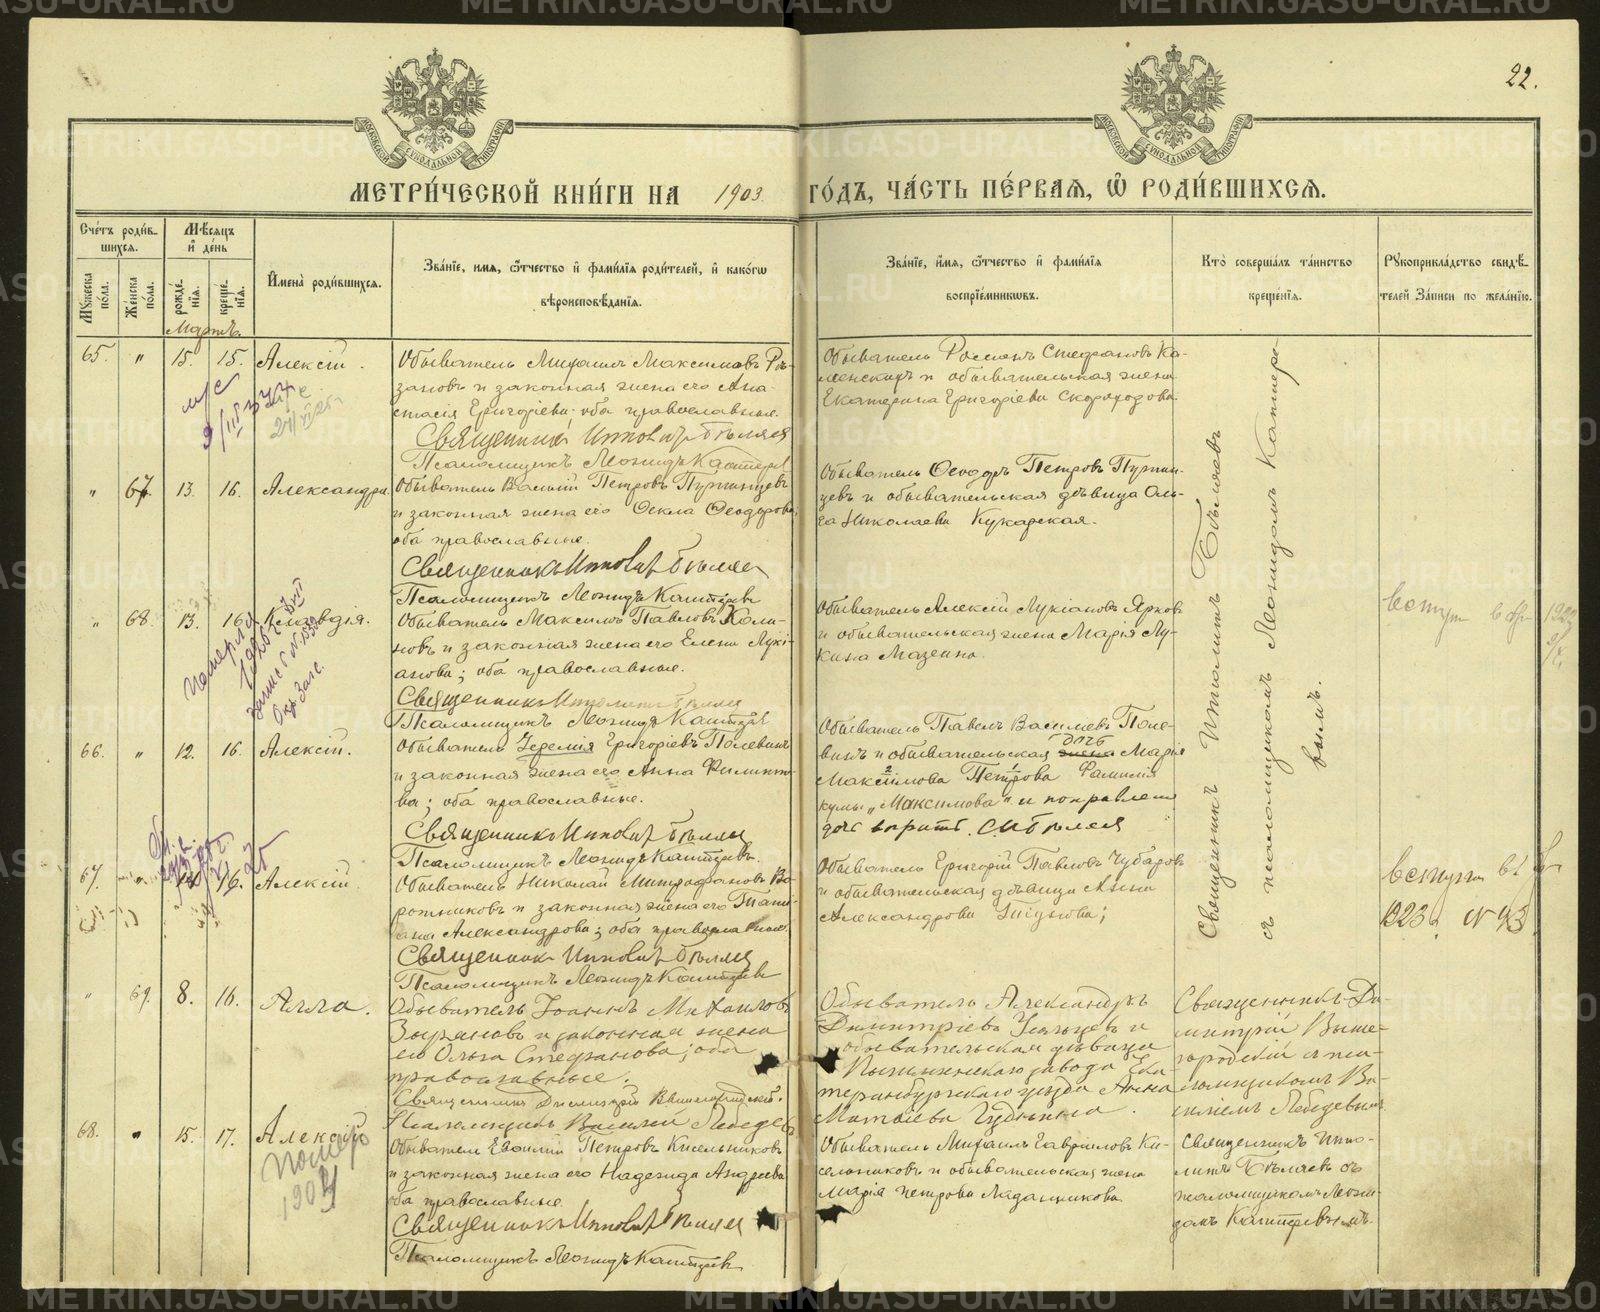 22.
МЕТРИ́ЧЕСКОЙ КНИ́ГИ НА 1903 ГО́ДЪ, ЧА́СТЬ ПЕ́РВАЯ, Ѡ РОДИ́ВШИХСЯ.
Сче́тъ роди́вшихся.
Му́жеска пола.
Же́нска пола.
Мѣ́сяцъ и де́нь
рожде́нія.
креще́нія.
Имена̀ роди́вшихся.
Зва́ніе, имя, о́тчество и фами́лія роди́телей, и како́гѡ вѣроисповѣ́данія.
Зва́ніе, и́мя, о́тчество и фами́лія воспріе́мниковъ.
Кто̀ соверша́лъ та́инство креще́нія.
Рукоприкла́дство свидѣ́телей За́писи по жела́нію.
Мартъ.
65. " 15. 15. Алексій.
Обыватель Михаилъ Максимовъ Рязановъ и законная жена его Анастасія Григоріева; оба православные.
Священникъ Ипполитъ Бѣляев
Псаломщикъ Леонидъ Каштеревъ
Обыватель
Стефановъ Каменскихъ и обывательская жена
Екатерина Григоріева Скороходова.
" 67. 13. 16. Александра.
Обыватель Василій Петровъ Пургинцевъ
и законная жена его Ѳекла Ѳеодорова;
оба православные.
Священникъ Ипполитъ Бѣляев
Псаломщикъ Леонидъ Каштеревъ
Обыватель Ѳеодоръ Петровъ Пургинцевъ и обывательская дѣвица Ольга Николаева Кукарская.
" 68. 13. 16. Клавдія.
Обыватель Максимъ Павловъ
и законная жена его Елена Лукіанова; оба православные.
Священникъ Ипполитъ Бѣляев
Псаломщикъ Леонидъ Каштеревъ
Обыватель Алексій Лукіановъ Ярковъ
и обывательская жена Марія Лукина Мазеина.
66. " 12. 16. Алексій.
Обыватель Іеремія Григоріевъ Полевинъ
и законная жена его Анна Филиппова; оба православные.
Священникъ Ипполитъ Бѣляев
Псаломщикъ Леонидъ Каштеревъ.
Обыватель Павелъ Васильевъ Полевинъ и обывательская жена дочь Марія
Максимова Петрова Фамилія
кумы „Максимова" и поправлено
дочь вѣрить. С.И.Бѣляев
67. " 14. 16. Алексій.
Обыватель Николай Митрофановъ Воротниковъ и законная жена его Татіана Александрова; оба православные.
Священник Ипполитъ Бѣляев
Псаломщикъ Леонидъ Каштеревъ
Обыватель Григорій Павловъ Чубаровъ
и обывательская дѣвица Анна
Александрова
" 69. 8. 16. Алла.
Обыватель Іоаннъ Михаиловъ
Зыряновъ и законная жена
его Ольга Стефанова; оба
православные.
Священникъ Димитрій Вышегородскій.
Псаломщикъ Василій Лебедевъ
Обыватель Александръ
Димитріевъ Усольцевъ и
обывательская дѣвица
Пышминскаго завода Екатеринбургскаго уѣзда Анна
Матѳіева
Священникъ Димитрій Вышегородскій съ псаломщикомъ Василіемъ Лебедевымъ
68. " 15. 17. Алексій
Обыватель Евѳимій Петровъ Кисельниковъ
и законная жена его Надежда Андреева
оба православные.
Священникъ Ипполитъ Бѣляев
Псаломщикъ Леонидъ Каштеревъ
Обыватель Михаилъ Гавриловъ Кисельниковъ и обывательская жена
Марія Петрова Ладанщикова
Священникъ Ипполитъ Бѣляевъ съ
псаломщикомъ Леонидомъ Каштеревымъ.
Священникъ Ипполитъ Бѣляевъ
съ псаломщикомъ Леонидомъ Каштеревымъ.
1923 N 43
помер
1904
METRIKI.GASO-URAL.RU